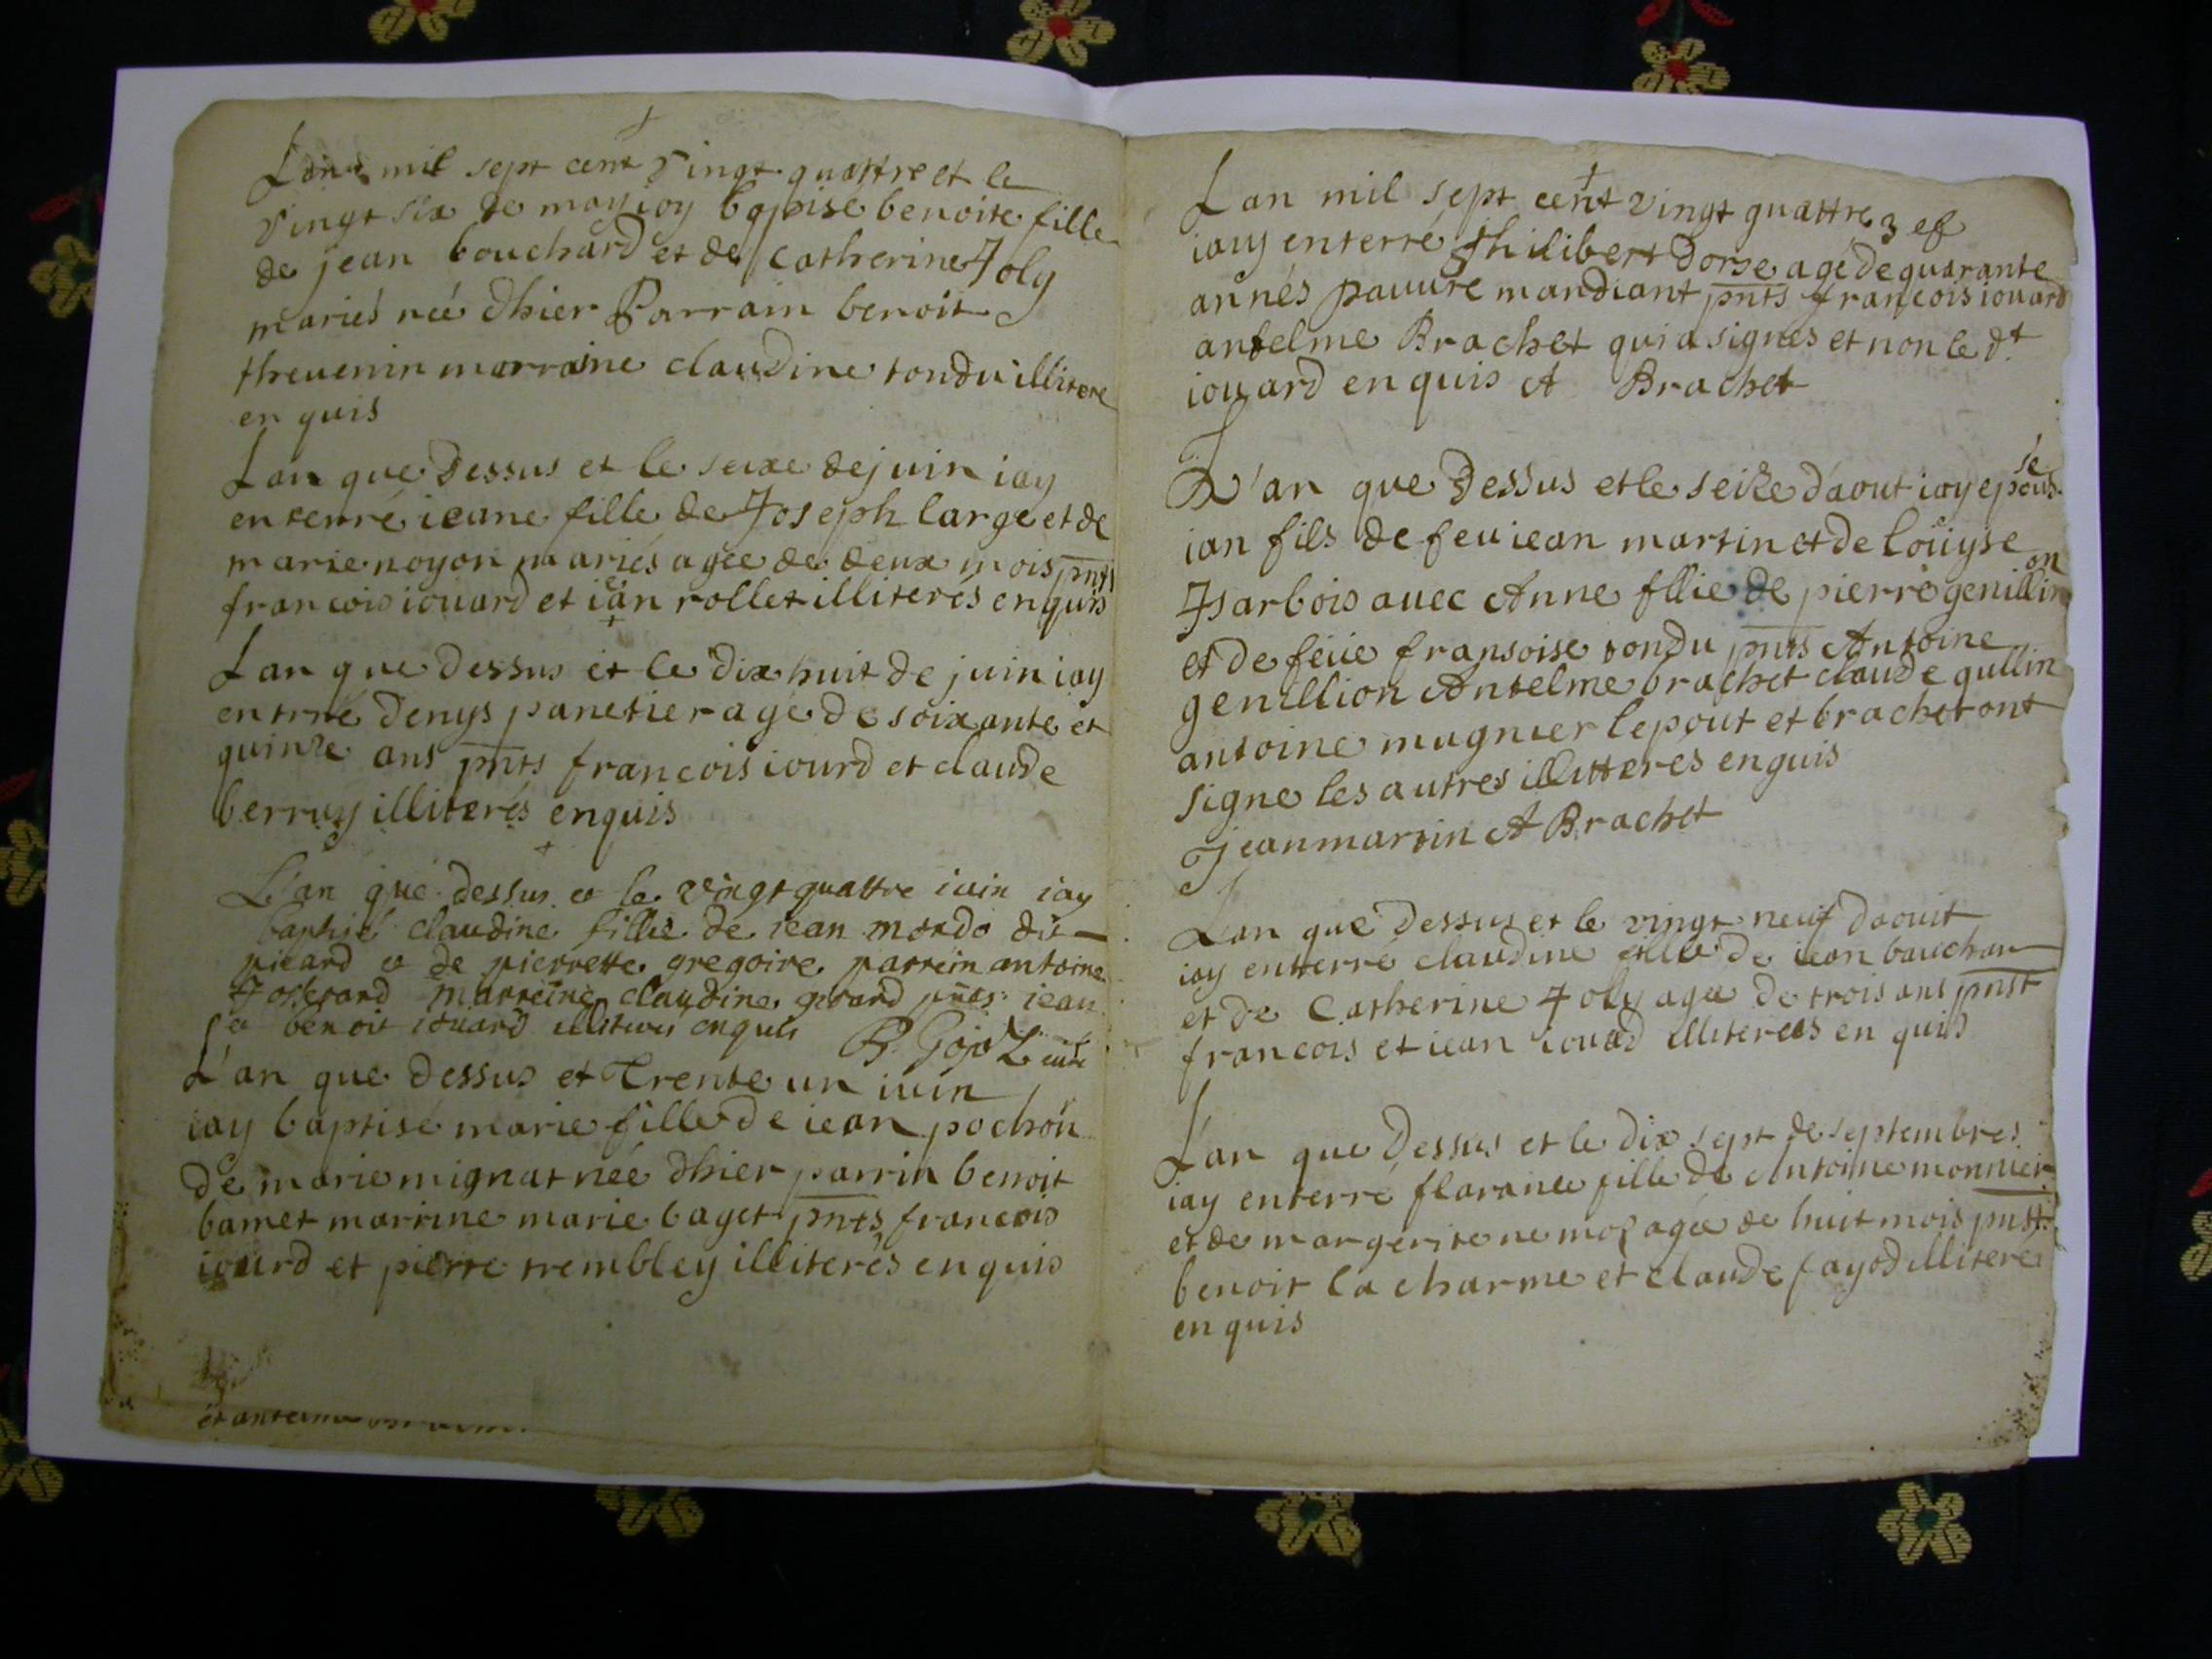 Lan mil sept cent vingt quattre et le
vingt six de may iay baptise benoite fille
de jean bouchard et de catherine Joly
mariés née dhier Parrain benoit
threuenin marraine claudine tondu illitere
en quis
Lan que dessus et le seixe de juin iay
enterré ieane fille de Joseph large et de
marie noyon mariés agee de deux mois pnts
francois iouard et iean rollet illiterés enquis
Lan que dessus et le dix huit de juin iay
entrré denys panetier agé de soixante et
quinze ans pnts francois iourd et claude
berruy illiterés enquis
L'an que dessus et le vingt quattre iuin iay
baptisé claudine fillie de iean mordo dit
picard et de pierrette gregoire parrein antoine
Josserand marreine claudine gerard pnts iean
et benoit iouard illiterés enquis B. Gojoz curé
L'an que dessus et Trente un iuin
iay baptisé marie fille de iean pochon
de marie mignat née dhier parrin benoit
bamet marrine marie baget pnts francois
iourd et pierre trembley illiterés enquis
et
Lan mil sept cent vingt quattre 3 et
iay enterré Philibert dorse agé de quarante
annés pauure mandiant pnts francois iouard
antelme Brachet qui a signes et non le dt
iouard enquis A Brachet
L'an que dessus et le seize daout iay epouse
ian fils de feu iean martin et de loüyse
Jsarbois auec Anne fllie de pierre genillion
et de feüe fransoise tondu pnts Antoine
genillion Antelme brachet claude gullin
antoine mugnier lepout et brachet ont
signe les autres illitterés enquis
Jean martin A Brachet
Lan que dessus et le vingt neuf daouit
iay entterré claudine fille de iean bauchar
et de Catherine Joly agee de trois ans pnst
francois et iean iouad illiterees en quis
L'an que dessus et le dix sept de septembres
iay enterré florance fille de Antoine monnier
et de margerite nemoz agée de huit mois pnst
benoit la charme et claude fayod illitere
en quis